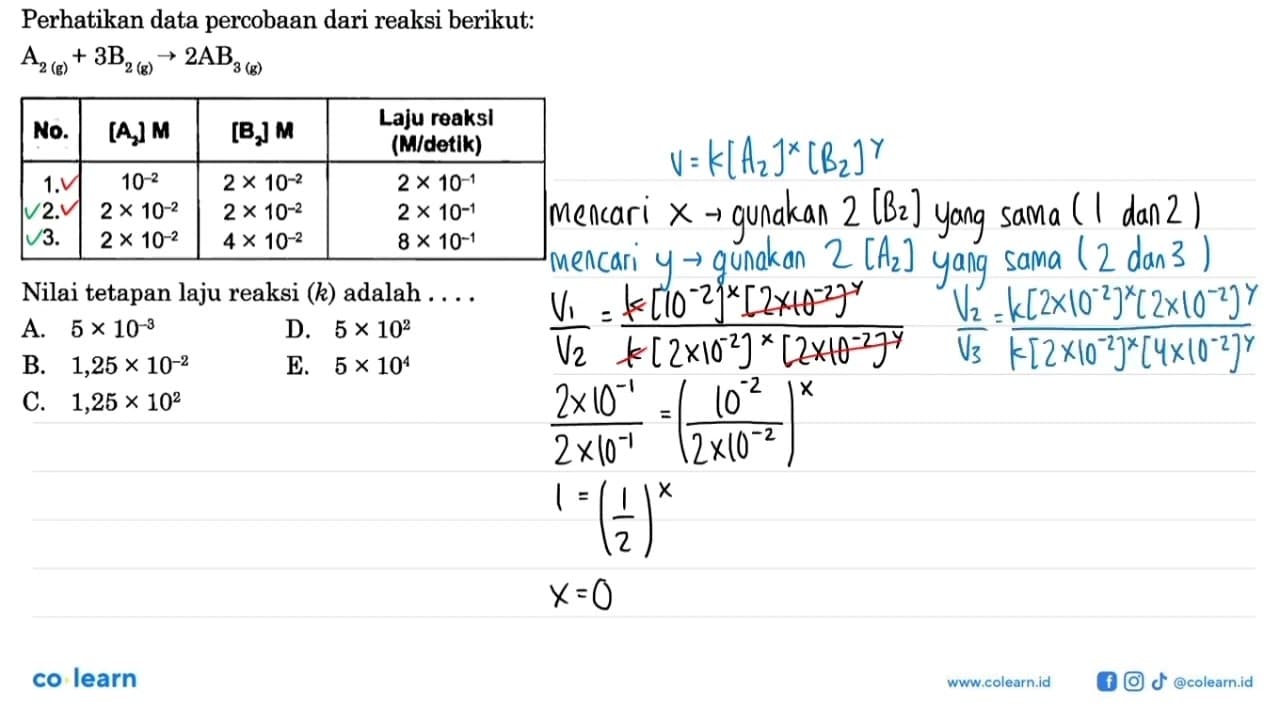 Perhatikan data percobaan dari reaksi berikut:
A₂ (g) + 3B₂ (g) → 2AB₃ (g)
No. [A₂] M [B₂] M Laju reaksi (M/detik)
1. 10⁻² 2 × 10⁻² 2 × 10⁻¹
2. 2 × 10⁻² 2 × 10⁻² 2 × 10⁻¹
3. 2 × 10⁻² 4 × 10⁻² 8 × 10⁻¹
Nilai tetapan laju reaksi (k) adalah . . . .
A. 5 × 10⁻³ D. 5 × 10²
B. 1,25 × 10⁻² E. 5 × 10⁴
C. 1,25 × 10²
V = k[A₂]ˣ [B₂]ʸ
mencari x → gunakan 2 [B₂] yang sama (1 dan 2)
mencari y → gunakan 2 [A₂] yang sama (2 dan 3)
V₁/V₂ = k[10⁻²]ˣ[2×10⁻²]ʸ / k[2×10⁻²]ˣ[2×10⁻²]ʸ
V₂/V₃ = k[2×10⁻²]ˣ[2×10⁻²]ʸ / k[2×10⁻²]ˣ[4×10⁻²]ʸ
2×10⁻¹/2×10⁻¹ = (10⁻²/2×10⁻²)ˣ
1 = (1/2)ˣ
x = 0
co learn
www.colearn.id
@colearn.id